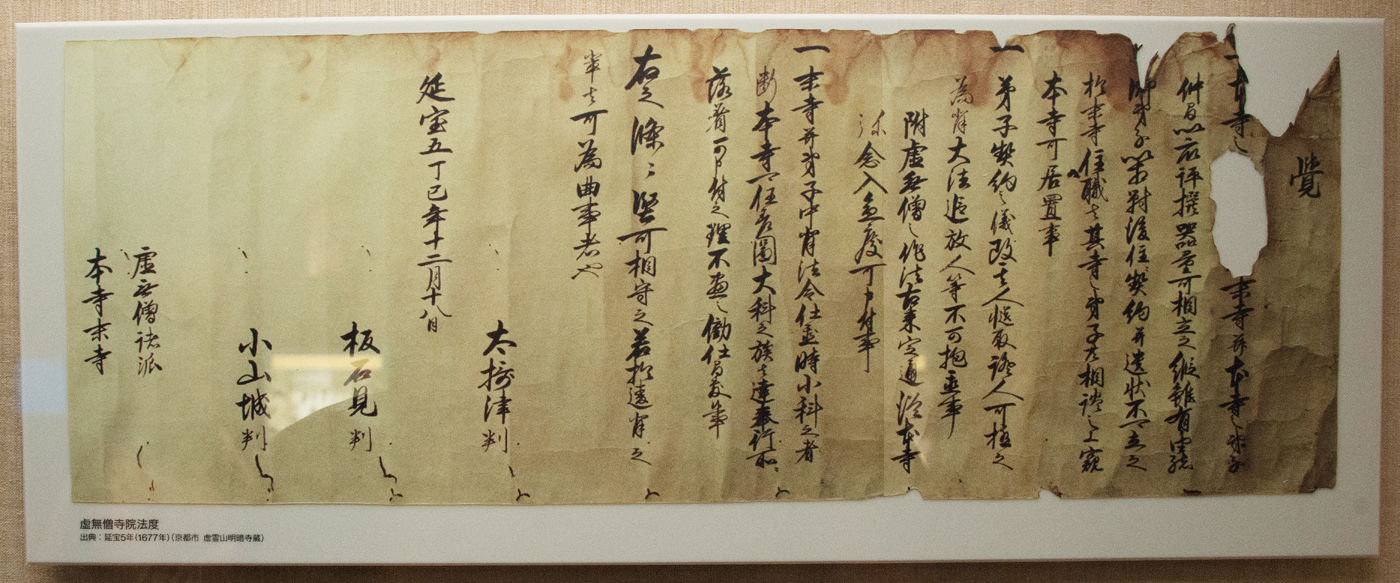 覺
一本寺之
末寺并本寺之弟子
仲間以衆評撰器量可相立之縦雖有由緒
對後住契約并遺状不可立之
於末寺住職者其寺之弟子共相談之上窺
本寺可居置事
一弟子契約之儀改其人慥取證人可極之
為背大法追放人等不可抱置事
附虚無僧之作法古来定通従本寺
弥念入急度可申付事
一末寺并弟子中背法令仕置時小科之者
断本寺可任差圖大科之族者達奉行所
落着可申付之理不盡之働仕間敷事
右之條々堅可相守之若於違背之
輩者可為曲事者也
延宝五丁巳年十二月十八日
太摂津判
板石見判
小山城判
虚無僧諸派
本寺末寺
虚無僧寺院法度
出典：延宝5年（1677年）（京都市 虚霊山明暗寺蔵）